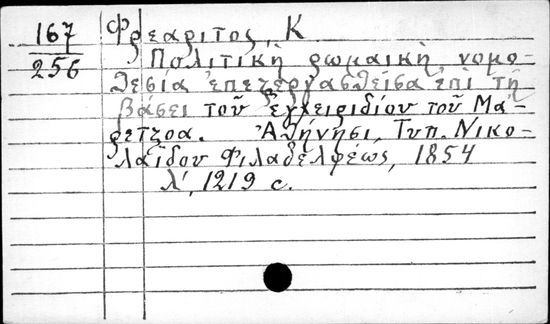 167
256
Φρεαρίτος, Κ.
Πολιτικὴ ρωμαικὴ νομο-
θεσία ἐπεξεργασθεῖσα ἐπὶ τῇ
βάσει τοῦ ἐγχειριδίου τοῦ Μα-
ρετζοα. Ἀθήνησι, Τυπ. Νικο-
λαΐδου Φιλαδελφέως, 1854
λ', 1219 с.